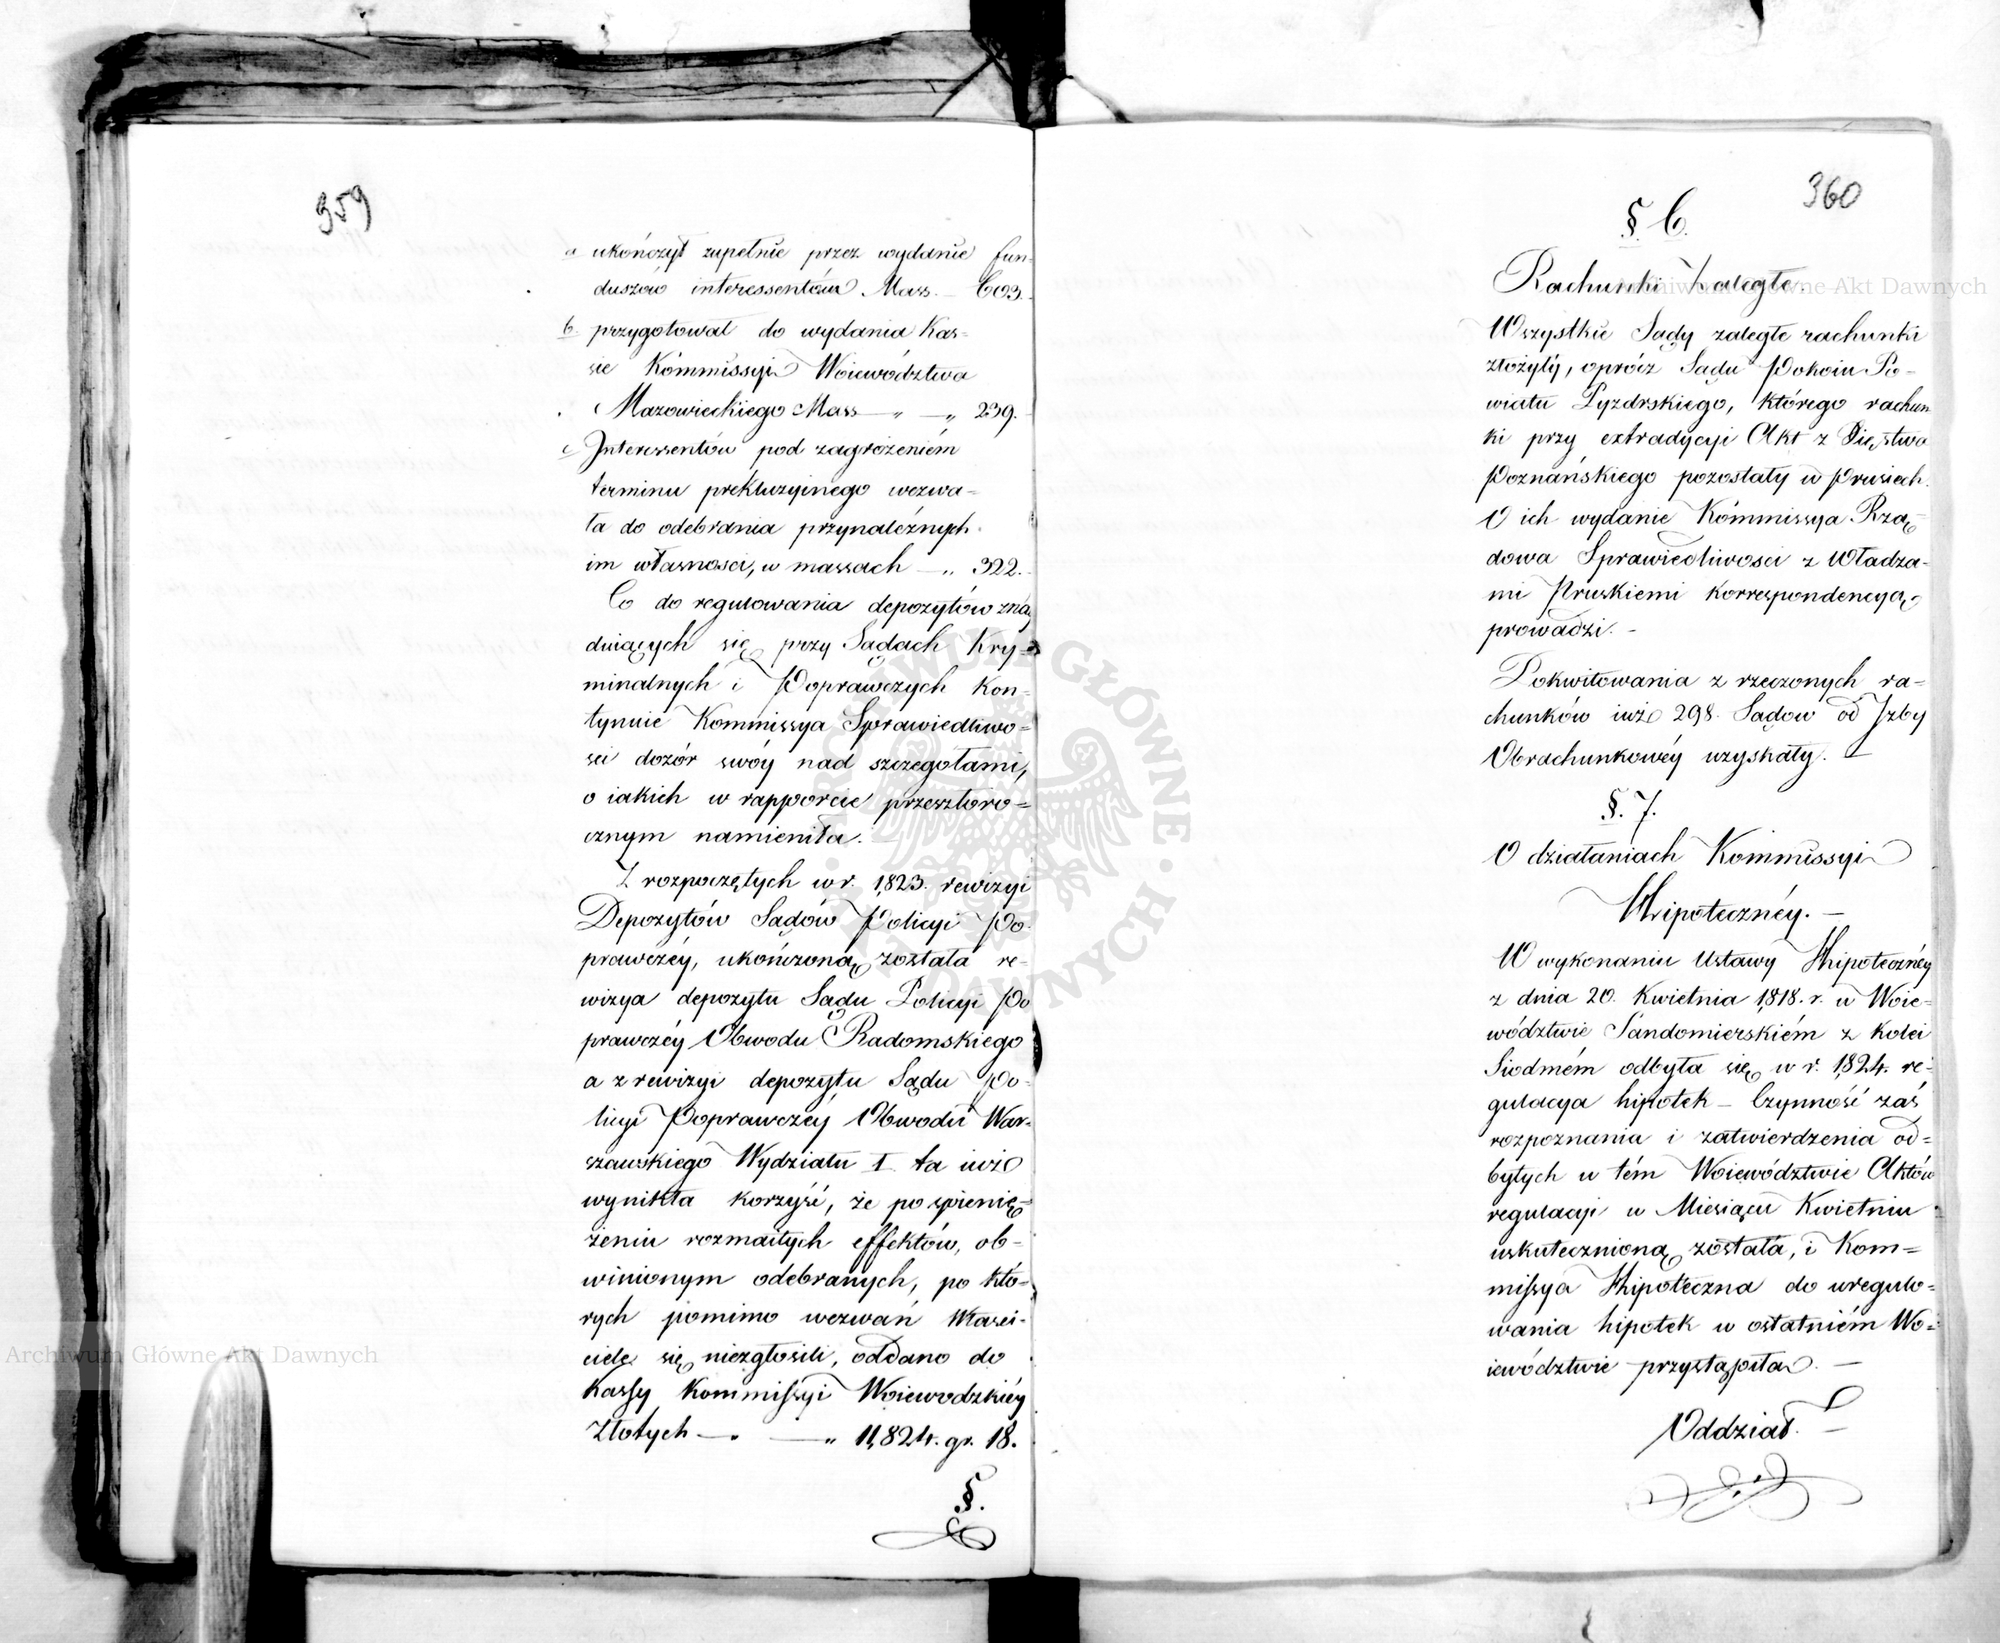 359
a ukończył zupełnie przez wydanie fun-
duszów interessentów Mass. — 603.
b. przygotował do wydania Kas-
sie Kommissyi Woiewództwa
Mazowieckiego Mass — „ — „ 239.
c Interessentów pod zagrożeniem
terminu prekluzyinego wezwa-
ła do odebrania przynależnych
im własności, w massach — „ 322.
Co do regulowania depozytów znay
duiących się przy Sądach Kry-
minalnych i Poprawczych kon-
tynuie Kommissya Sprawiedliwo-
ści dozór swóy nad szczegółami,
o iakich w rapporcie przeszłoro-
cznym namieniła.
Z rozpoczętych w r. 1,823. rewizyi
Depozytów Sądów Policyi Po-
prawczéy, ukończoną została re-
wizya depozytu Sądu Policyi Po
prawczéy Obwodu Radomskiego
a z rewizyi depozytu Sądu Po-
licyi Poprawczéy Obwodu War-
szawskiego Wydziału I. ta iuż
wynikła korzyść, że po spienię-
żeniu rozmaitych effektów, ob-
winionym odebranych, po któ-
rych pomimo wezwań właści-
ciele się niezgłosili, oddano do
Kassy Kommissyi Woiewodzkiéy
Złotych — „ — „ 11,824. gr. 18.
§.
360
§. 6.
Rachunki zaległe.
Wszystkie Sądy zaległe rachunki
złożyły, oprócz Sądu Pokoiu Po-
wiatu Pyzdrskiego, którego rachun
ki przy extradycyi Akt z Xięstwa
Poznańskiego pozostały w Prusiech.
O ich wydanie Kommissya Rzą-
dowa Sprawiedliwości z Władza-
mi Pruskiemi korrespondencyą
prowadzi. -
Pokwitowania z rzeczonych ra-
chunków iuż 298. Sądów od Izby
Obrachunkowéy uzyskały. —
§. 7.
O działaniach Kommissyi
Hipotecznéy. —
W wykonaniu Ustawy Hipotecznéy
z dnia 20. Kwietnia 1,818. r. w Woie-
wództwie Sandomierskiém z kolei
Siódmém odbyła się w r. 1,824. re-
gulacya hipotek — Czynność zaś
rozpoznania i zatwierdzenia od-
bytych w tém Woiewództwie Aktów
regulacyi w Miesiącu Kwietniu
uskutecznioną została, i Kom-
missya Hipoteczna do uregulo-
wania hipotek w ostatniém Wo-
iewództwie przystąpiła. —
Oddział. —
Archiwum Główne Akt Dawnych
Archiwum Główne Akt Dawnych
ARCHIWUM GŁÓWNE AKT DAWNYCH